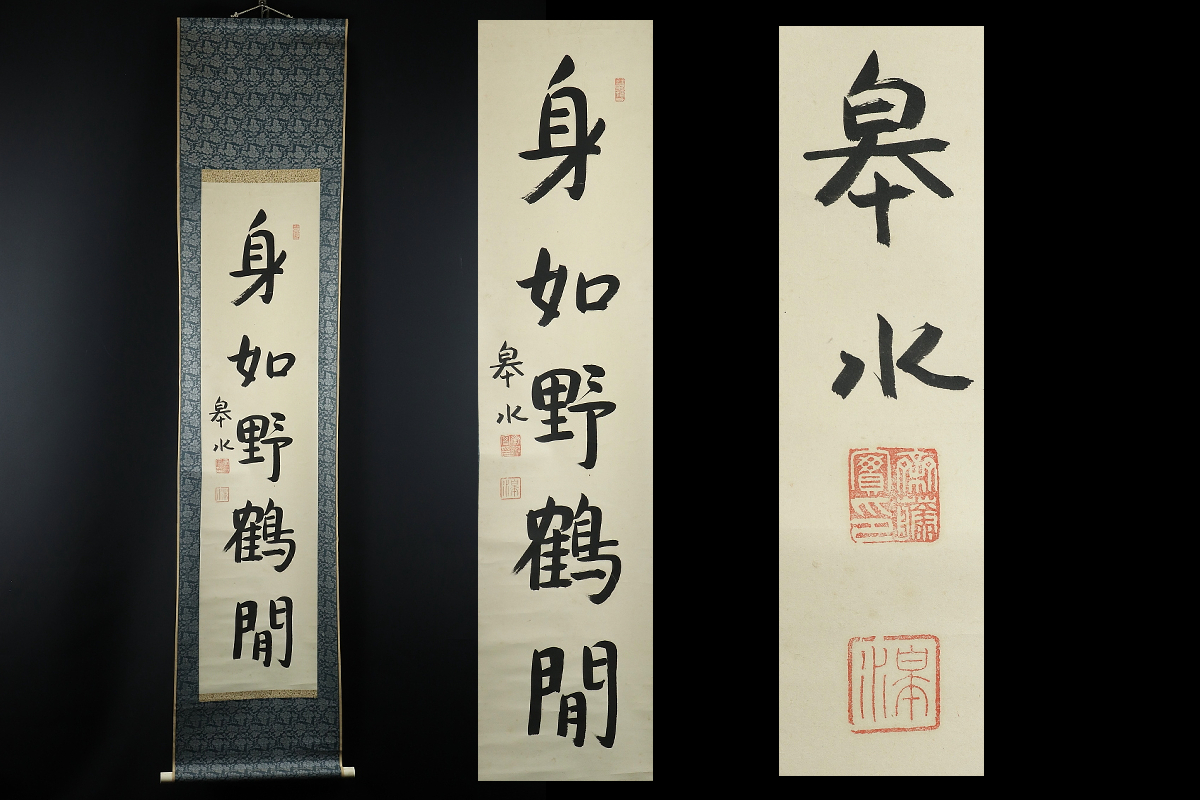 身如野鶴閒
皐水
身如野鶴閒
皐水
皐水